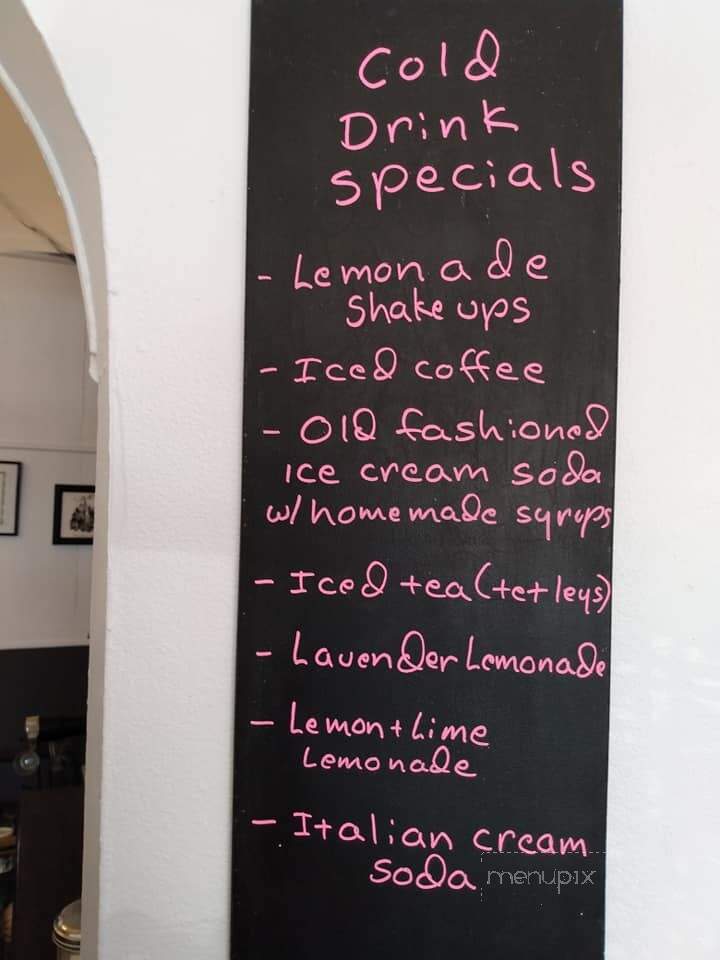 Cold
Drink
specials
- Lemonade
Shake ups
- Iced coffee
- Old fashioned
ice cream soda
w/homemade syrups
- Iced tea (tetleys)
- Lavender Lemonade
- Lemon + Lime
Lemonade
- Italian cream
soda
menupix